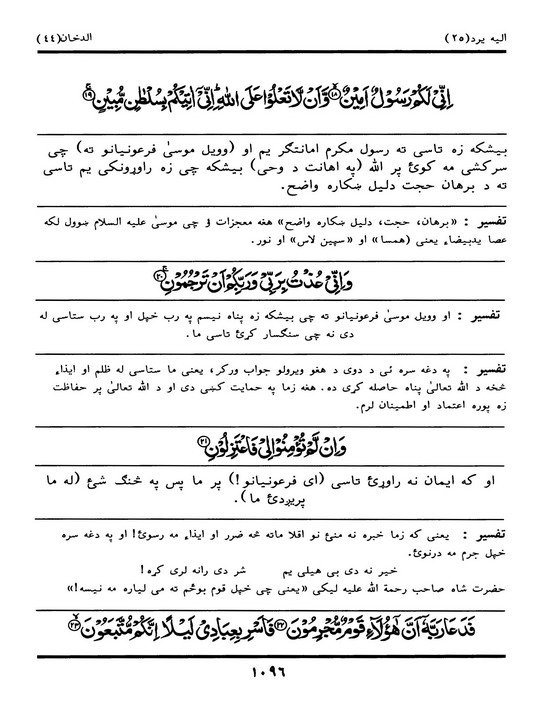 اليه يرد(٢٥) الدخان(٤٤)
اِنِّیْ لَكُمْ رَسُوْلٌ اَمِیْنٌ ۙ﴿۱۸﴾ وَّاَنْ لَّا تَعْلُوْا عَلَی اللّٰهِ ۚ اِنِّیْۤ اٰتِیْكُمْ بِسُلْطٰنٍ مُّبِیْنٍ ۚ﴿۱۹﴾
بیشکه زه تاسی ته رسول مکرم امانتګر یم او (وویل موسیٰ فرعونیانو ته) چی
سرکشی مه کوئ پر الله (په اهانت د وحی) بیشکه چی زه راوړونکی یم تاسی
ته د برهان حجت دلیل ښکاره واضح.
تفسیر : «برهان، حجت، دلیل ښکاره واضح» هغه معجزات ؤ چی موسیٰ علیه السلام ښوول لکه
عصا یدبیضاء یعنی (همسا» او «سپین لاس» او نور.
وَاِنِّیْ عُذْتُ بِرَبِّیْ وَرَبِّكُمْ اَنْ تَرْجُمُوْنِ ۫﴿۲۰﴾
تفسیر : او وویل موسیٰ فرعونیانو ته چی بیشکه زه پناه نیسم په رب خپل او په رب ستاسی له
دی نه چی سنګسار کړئ تاسی ما.
تفسیر : په دغه سره ئی د دوی د هغو ویرولو جواب ورکړ، یعنی ما ستاسی له ظلم او ایذاء
څخه د الله تعالیٰ پناه حاصله کړی ده. هغه زما په حمایت کښی دی او د الله تعالیٰ پر حفاظت
زه پوره اعتماد او اطمینان لرم.
وَاِنْ لَّمْ تُؤْمِنُوْا لِیْ فَاعْتَزِلُوْنِ ﴿۲۱﴾
او که ایمان نه راوړئ تاسی (ای فرعونیانو!) پر ما پس په څنګ شئ (له ما
پریږدئ ما).
تفسیر : یعنی که زما خبره نه منئ نو اقلا ماته څه ضرر او ایذاء مه رسوئ! او په دغه سره
خپل جرم مه درنوئ.
خیر نه دی بی هیلی یم شر دی رانه لری کړه!
حضرت شاه صاحب رحمة الله علیه لیکی «یعنی چی خپل قوم بوځم ته می لیاره مه نیسه!»
فَدَعَا رَبَّهٗۤ اَنَّ هٰۤؤُلَآءِ قَوْمٌ مُّجْرِمُوْنَ ﴿۲۲﴾ فَاَسْرِ بِعِبَادِیْ لَیْلًا اِنَّكُمْ مُّتَّبَعُوْنَ ۙ﴿۲۳﴾
١٠٩٦